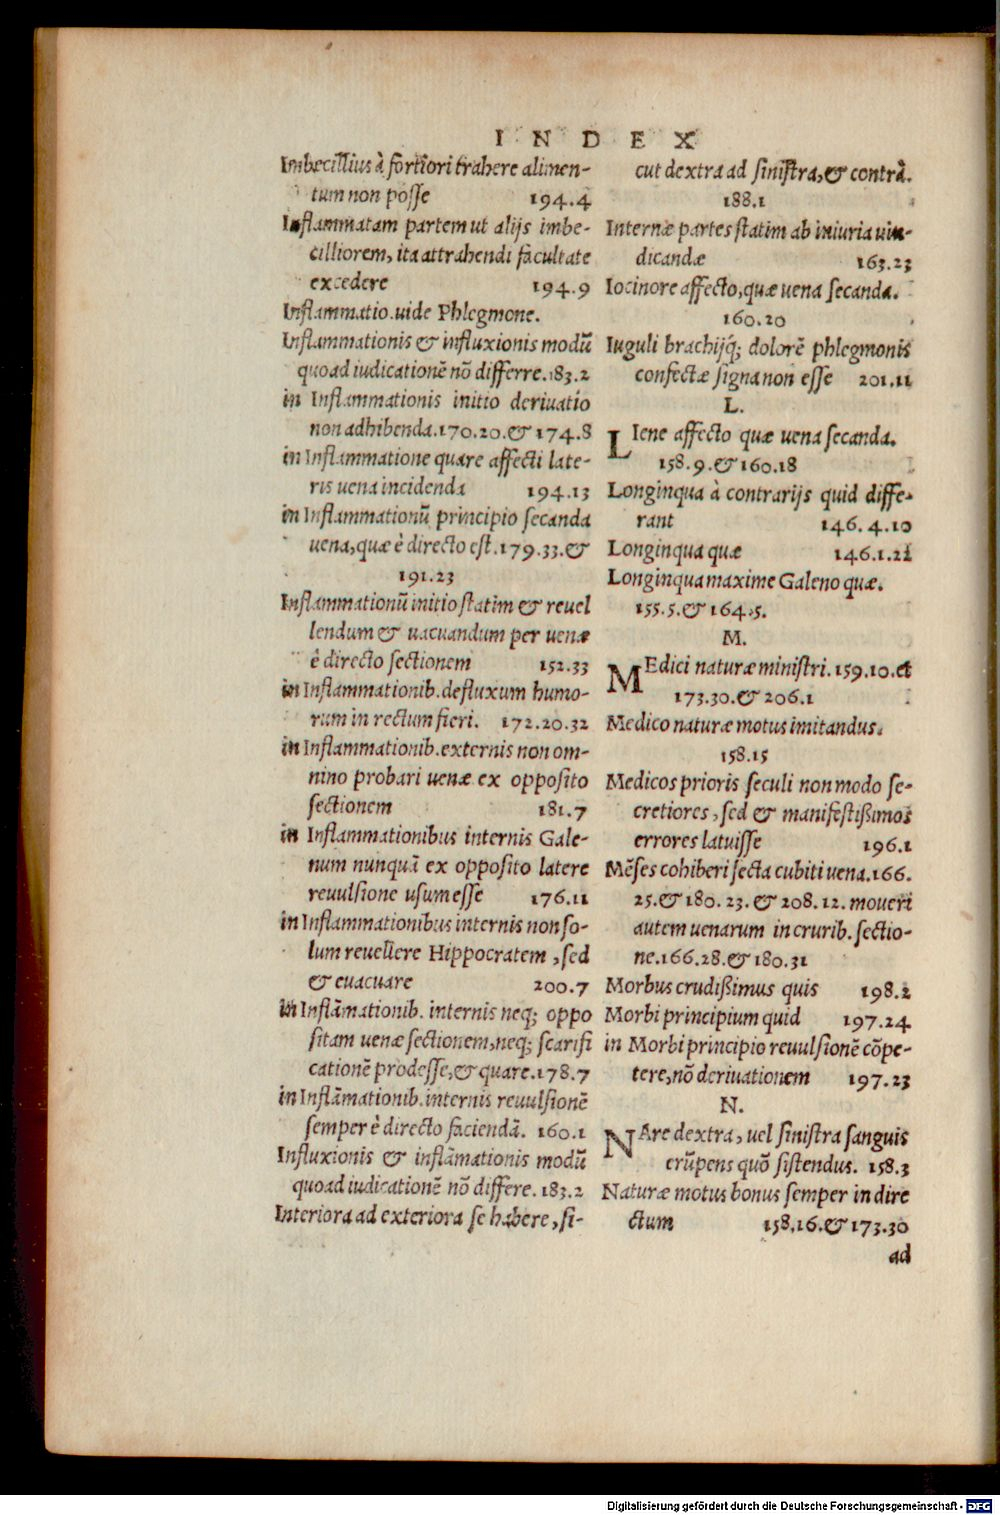 INDEX
Imbecillius à fortiori trahere alimen-
tum non posse 194.4
Inflammatam partem ut alijs imbe-
cilliorem, ita attrahendi facultate
excedere 194.9
Inflammatio. uide Phlegmone.
Inflammationis & influxionis modũ
quoad iudicationẽ nõ differre. 183.2
in Inflammationis initio deriuatio
non adhibenda. 170.20. & 174.8
in Inflammatione quare affecti late-
ris uena incidenda 194.13
in Inflammationũ principio secanda
uena, quæ è directo est. 179.33. &
191.23
Inflammationũ initio statim & reuel
lendum & uacuandum per uenæ
è directo sectionem 152.33
in Inflammationib. defluxum humo-
rum in rectum fieri. 172.20.32
in Inflammationib. externis non om-
nino probari uenæ ex opposito
sectionem 181.7
in Inflammationibus internis Gale-
num nunquã ex opposito latere
reuulsione usum esse 176.11
in Inflammationibus internis non so-
lum reuellere Hippocratem, sed
& euacuare 200.7
in Inflãmationib. internis neq; oppo
sitam uenæ sectionem, neq; scarifi
cationẽ prodesse, & quare. 178.7
in Inflãmationib. internis reuulsionẽ
semper è directo faciendã. 160.1
Influxionis & inflãmationis modũ
quoad iudicationẽ nõ differe. 183.2
Interiora ad exteriora se habere, si-
cut dextra ad sinistra, & contrà.
188.1
Internæ partes statim ab iniuria uin-
dicandæ 163.23
Iocinore affecto, quæ uena secanda.
160.20
Iuguli brachijq́; dolorẽ phlegmonis
confectæ signa non esse 201.11
L.
LIene affecto quæ uena secanda.
158.9. & 160.18
Longinqua à contrarijs quid diffe-
rant 146.4.10
Longinqua quæ 146.1.21
Longinqua maxime Galeno quæ.
155.5. & 164.5.
M.
MEdici naturæ ministri. 159.10. et
173.30. & 206.1
Medico naturæ motus imitandus.
158.15
Medicos prioris seculi non modo se-
cretiores, sed & manifestißimos
errores latuisse 196.1
Mẽses cohiberi secta cubiti uena. 166.
25. & 180.23. & 208.12. moueri
autem uenarum in crurib. sectio-
ne. 166.28. & 180.31
Morbus crudißimus quis 198.2
Morbi principium quid 197.24
in Morbi principio reuulsionẽ cõpe-
tere, nõ deriuationem 197.23
N.
NAre dextra, uel sinistra sanguis
erũpens quõ sistendus. 158.3
Naturæ motus bonus semper in dire
ctum 158.16. & 173.30
ad
Digitalisierung gefördert durch die Deutsche Forschungsgemeinschaft - DFG